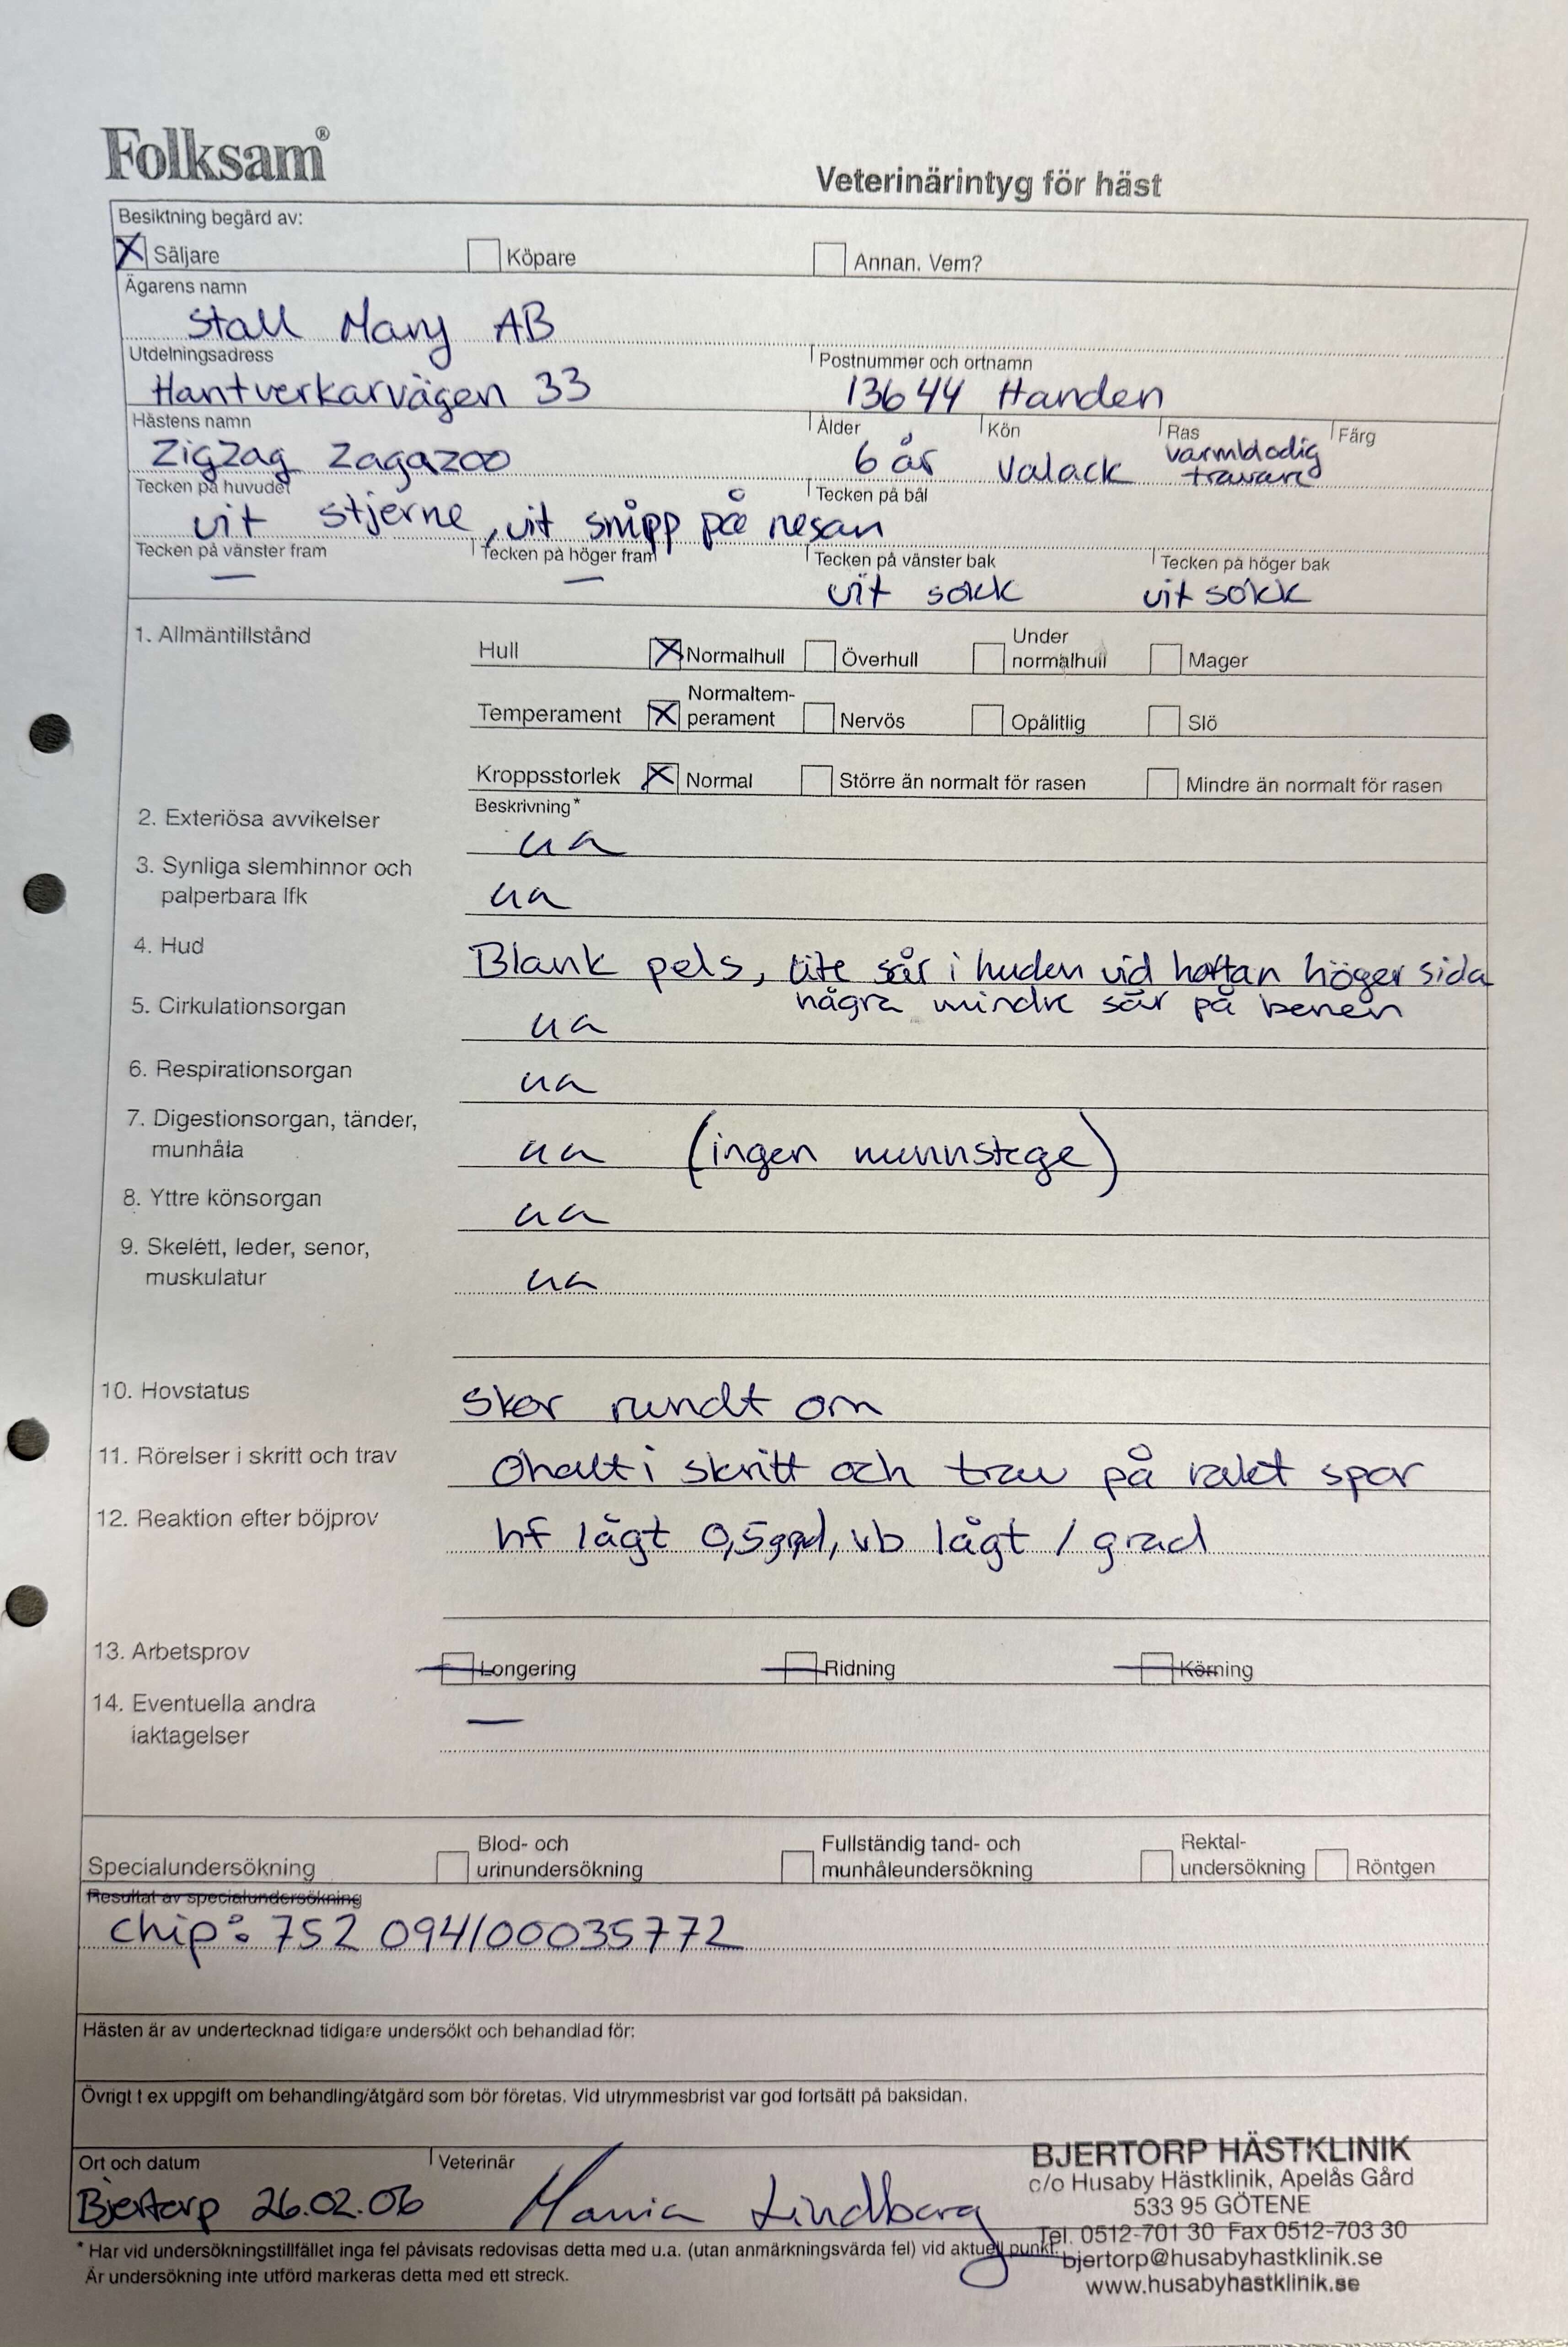 Folksam®
Veterinärintyg för häst
Besiktning begärd av:
Säljare Köpare Annan. Vem?
Ägarens namn
Stall Mary AB
Utdelningsadress Postnummer och ortnamn
Hantverkarvägen 33 13644 Handen
Hästens namn Ålder Kön Ras Färg
ZigZag Zagazoo 6 år Valack varmblodig travare
Tecken på huvudet Tecken på bål
vit stjerne, vit snipp på nesan
Tecken på vänster fram Tecken på höger fram Tecken på vänster bak Tecken på höger bak
— — vit sokk vit sokk
1. Allmäntillstånd
Hull Normalhull Överhull Under normalhull Mager
Temperament Normaltem-
perament Nervös Opålitlig Slö
Kroppsstorlek Normal Större än normalt för rasen Mindre än normalt för rasen
Beskrivning*
2. Exteriösa avvikelser ua
3. Synliga slemhinnor och
palperbara lfk ua
4. Hud Blank pels, lite sår i huden vid høftan höger sida
några mindre sår på benen
5. Cirkulationsorgan ua
6. Respirationsorgan ua
7. Digestionsorgan, tänder,
munhåla ua (ingen munnstege)
8. Yttre könsorgan ua
9. Skelett, leder, senor,
muskulatur ua
10. Hovstatus Skor rundt om
11. Rörelser i skritt och trav Ohalt i skritt och trav på rakt spor
12. Reaktion efter böjprov hf lågt 0,5 grad, vb lågt 1 grad
13. Arbetsprov Longering Ridning Körning
14. Eventuella andra
iaktagelser —
Specialundersökning Blod- och
urinundersökning Fullständig tand- och
munhåleundersökning Rektal-
undersökning Röntgen
Resultat av specialundersökning
chip: 752 094100035772
Hästen är av undertecknad tidigare undersökt och behandlad för:
Övrigt t ex uppgift om behandling/åtgärd som bör företas. Vid utrymmesbrist var god fortsätt på baksidan.
Ort och datum Veterinär
Bjertorp 26.02.06 Maria Lindberg
BJERTORP HÄSTKLINIK
c/o Husaby Hästklinik, Apelås Gård
533 95 GÖTENE
Tel. 0512-701 30 Fax 0512-703 30
bjertorp@husabyhastklinik.se
www.husabyhastklinik.se
* Har vid undersökningstillfället inga fel påvisats redovisas detta med u.a. (utan anmärkningsvärda fel) vid aktuell punkt.
Är undersökning inte utförd markeras detta med ett streck.